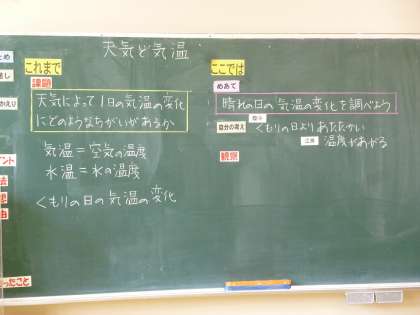 天気と気温
これまで
課題
天気によって1日の気温の変化
にどのようなちがいがあるか
気温=空気の温度
水温=水の温度
くもりの日の気温の変化
ここでは
めあて
晴れの日の気温の変化を調べよう
自分の考え
くもりの日よりあたたかい
温度があがる
観察